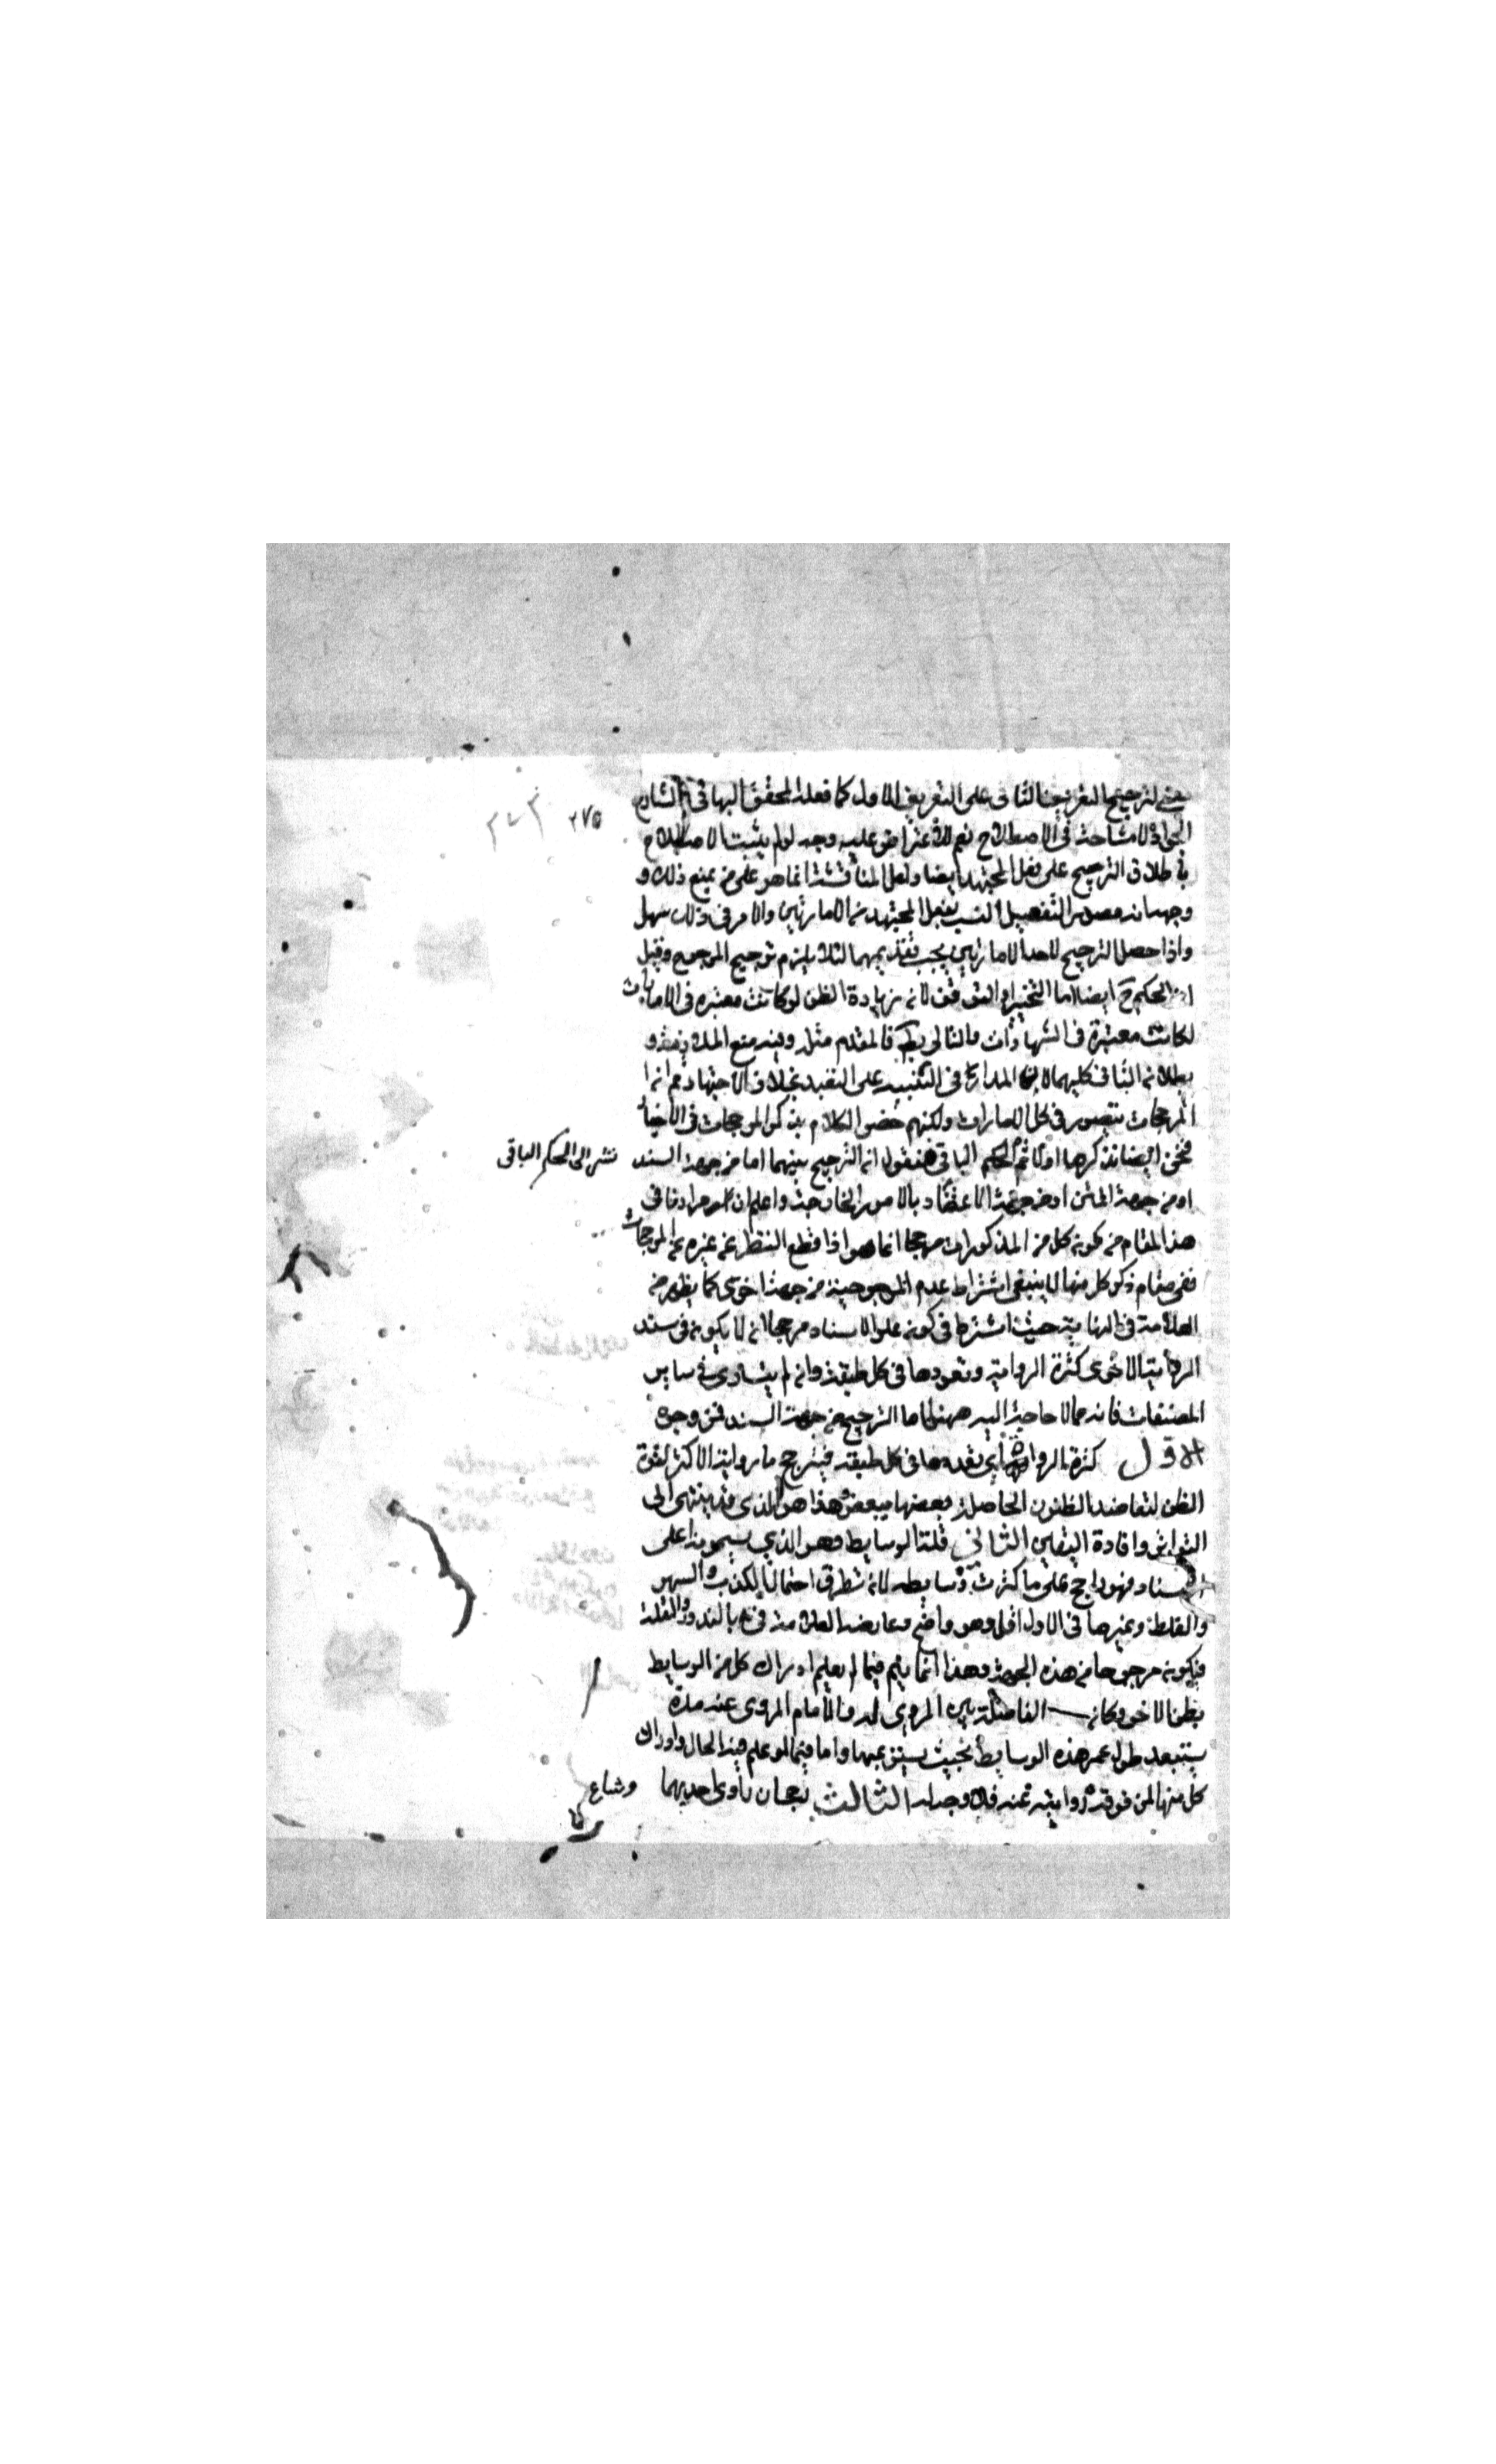 لترجيح التعريف الثانى على التعريف الاول كما فعله المحقق البهائى
٢٧٥
لا مشاحة فى الاصطلاح نعم للاعتراض عليه وجه لو لم يثبت الاصطلاح
اطلاق الترجيح على فعل المجتهد ايضا ولعل المناقشة انما هو على من يمنع ذلك و
التفصيل بفعل المجتهد الامارتين والامر فى ذلك سهل
واذا حصل الترجيح لاحد الامارتين يجب تقديمها لئلا يلزم ترجيح المرجوح وقيل
الحكم ح ايضا اما التخيير او التوقف لانه زيادة الظن لو كانت معتبره فى الامارات
لكانت معتبرة فى الشهادات والتالى بط فالمقدم مثله وفيه منع الملازمة و
بطلان الثانى كليهما المدار فى على التعبد بخلاف الاجتهاد نعم ان
المرجحات تتصور فى كل الامارات ولكنهم خصوا الكلام بذكر المرجحات فى الاخبار
فنحن ايضا نذكرها اولا ثم الحكم الباقى فنقول ان الترجيح بينهما اما من جهة السند
نشر الى الحكم الباقى
او من جهة المتن او من جهة الاعتضاد بالامور الخارجية واعلم ان مرادنا فى
هذا المقام من كون كل من المذكورات مرجحا انما هو اذا قطع النظر عن غيره من المرجحات
ففى مقام ذكر كل منها لا ينبغى اشتراط عدم المرجوحية من جهة اخرى كما يظهر من
العلامة فى النهاية حيث اشترط فى كون علو الاسناد مرجحا ان لا يكون فى سند
الرواية الاخرى كثرة الرواية وتعددها فى كل طبقة وان لم يتساوى فى ساير
الصفات فانه مما لا حاجة اليه ههنا اما الترجيح من جهة السند فمن وجوه
الاول كثرة الرواة اى تعددها فى كل طبقة فيترجح ما رواية الاكثر لقوة
الظن لتعاضد الظنون الحاصلة بعضها ببعض هذا هو الذى قد ينتهى الى
التواتر وافادة اليقين الثانى قلة الوسايط وهو الذي يسمونه اعلى
فهو راجح على ما كثرت وسايطه لانه تطرق احتمال الكذب والسهو
والغلط وغيرها فى الاول اقل وهو واضح وعارضه العلامة فى بالندور والقلة
فيكون مرجوحا من هذه الجهة وهذا انما يتم فيما لم يعلم ادراك كل من الوسايط
بطن الاخر وكان الفاصلة بين المروى له والامام المروى عنه مدة
يستبعد طول عمر هذه الوسايط بحيث واما فيما لو علم فيه الحال وادراك
كل منها لمن فوقه روايته عنه فلا وجه له الثالث رجحان راوى احديهما
وشاع